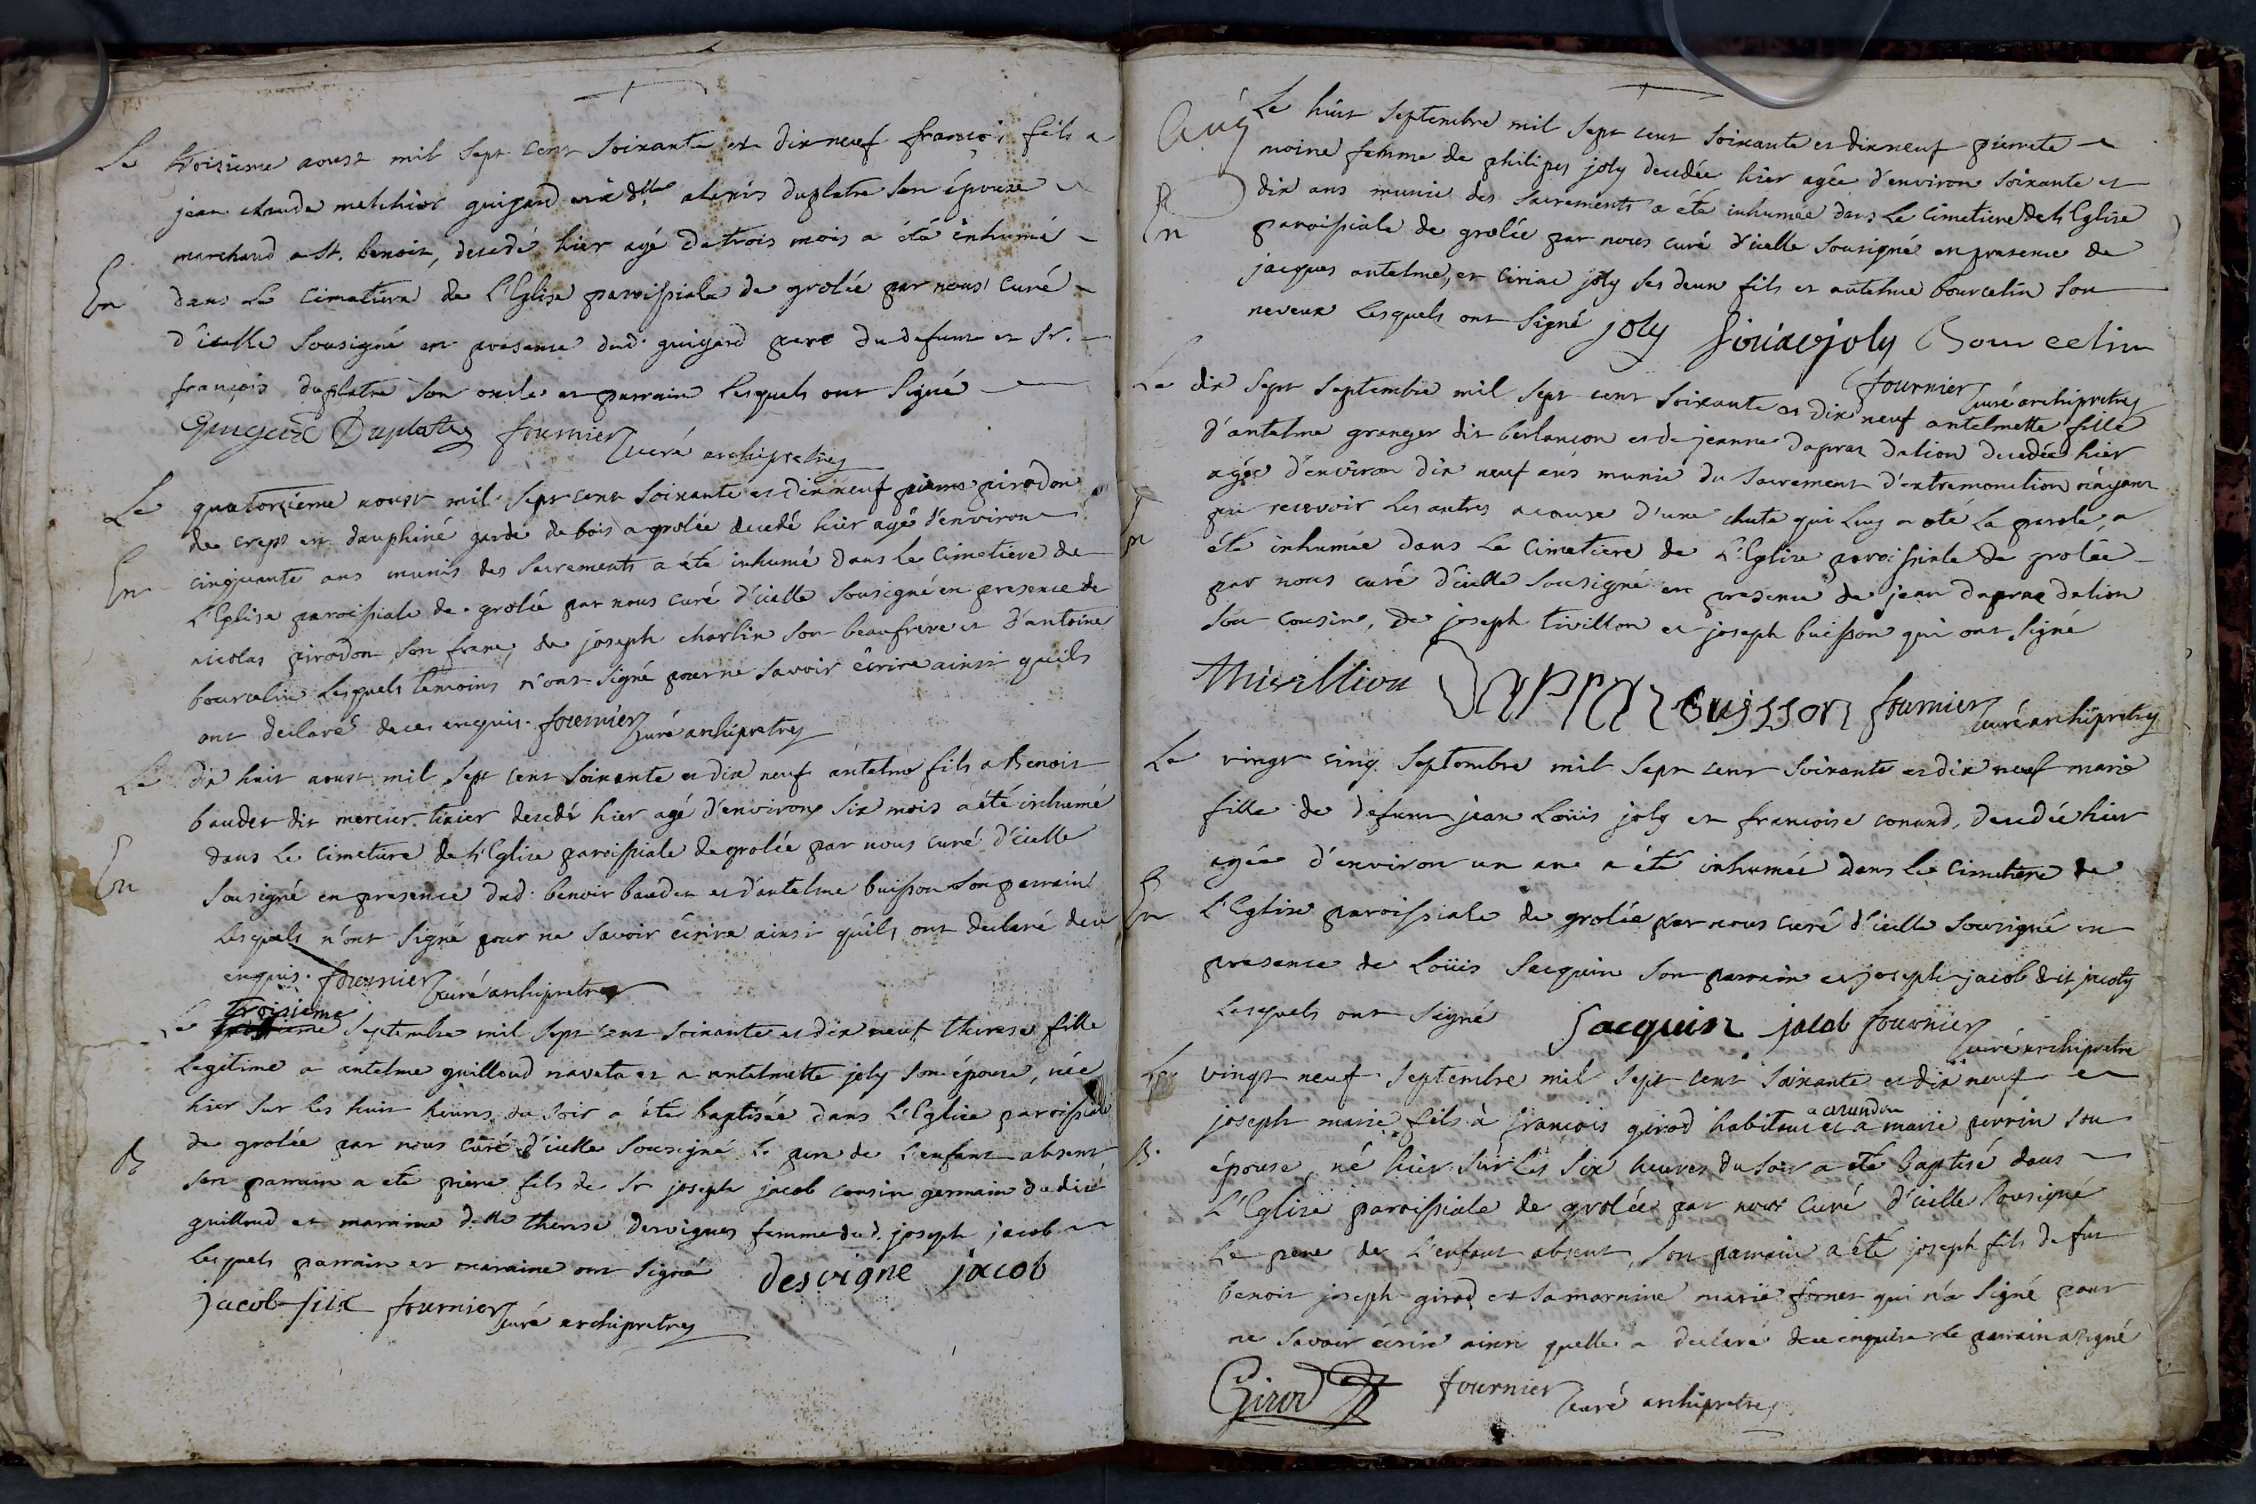 Le troisieme aoust mil sept cent soixante et dix neuf françois fils a
jean claude melchior guigard et a dlle alexis duplatre son épouse
marchand a st. benoit, decedé hier agé de trois mois a été inhumé
En
dans le cimetiere de l'Eglise paroissiale de grolée par nous curé
d'icelle sousigné en presence dud. guigard pere du defunt et sr.
françois duplatre son oncle et parrain lesquels ont signé
Guigard Duplatre fournier curé archipretre
Le quatorzieme aoust mil sept cent soixante et dix neuf pierre pirodon
de creps en dauphiné garde de bois a grolée decedé hier agé d'environ
En
cinquante ans munis des sacrements a été inhumé dans le cimetiere de
l'Eglise paroissiale de grolée par nous curé d'icelle sousigné en presence de
nicolas pirodon son frere, de joseph charlin son beaufrere et d'antoine
bourcelin lesquels temoins n'ont signé pour ne savoir écrire ainsi quils
ont declaré de ce enquis. fournier curé archipretre
Le dix huit aoust mil sept cent soixante et dix neuf antelme fils a Benoit
baudet dit mercier tixier decedé hier agé d'environ six mois a été inhumé
dans le cimetiere de l'Eglise paroissiale de grolée par nous curé d'icelle
En
sousigné en presence dud. benoit baudet et d'antelme buisson son parrain
lesquels n'ont signé pour ne savoir écrire ainsi quils ont declaré de ce
enquis. fournier curé archipretre
troisieme
Le septembre mil sept cent soixante et dix neuf therese fille
legitime a antelme guilloud navata et a antelmette joly son épouse, née
hier sur les huit heures du soir a été baptisée dans l'Eglise paroissiale
B
de grolée par nous curé d'icelle sousigné le pere de l'enfant absent
son parrain a été pierre fils de sr joseph jacob cousin germain dudit
guilloud et marraine d.lle therese desvignes femme dud. joseph jacob
lesquels parrain et maraine ont signé desvigne jacob
jacob fils fournier curé archipretre
Le huit septembre mil sept cent soixante et dix neuf pierrete
moine femme de philipes joly decedée hier agée d'environ soixante et
En
dix ans munie des sacrements a été inhumée dans le cimetiere de l'Eglise
paroissiale de grolée par nous curé d'icelle sousigné en presence de
jacques antelme, et ciriac joly ses deux fils et antelme bourcelin son
neveux lesquels ont signé joly siriacjoly Bourcelin
fournier curé archipretre
Le dix sept septembre mil sept cent soixante et dix neuf antelmette fille
d'antelme granger dit berlancon et de jeanne dapraz dalion decedée hier
agée d'environ dix neuf ans munie du sacrement d'extremonction n'ayant
En
pu recevoir les autres acause d'une chute qui luy a oté la parole, a
été inhumée dans le cimetiere de l'Eglise paroissiale de grolée
par nous curé d'icelle sousigné en presence de jean dapraz dalion
son cousin, de joseph tivillon et joseph buisson qui ont signé
thivillion Dapraz buisson fournier curé archipretre
Le vingt cinq septembre mil sept cent soixante et dix neuf marie
fille de defunt jean Loüis joly et francoise conand, decedée hier
agée d'environ un an a été inhumée dans le cimetiere de
En
l'Eglise paroissiale de grolée par nous curé d'icelle sousigné en
presence de Loüis sacquin son parrain et joseph jacob dit jacoty
lesquels ont signé sacquin jacob fournier
curé archipretre
Le vingt neuf septembre mil sept cent soixante et dix neuf
joseph marie fils à francois girod habitant et a marie perrin son
B.
épouse, né hier sur les six heures du soir a été baptisé dans
l'Eglise paroissiale de grolée par nous curé d'icelle sousigné
Le pere de l'enfant absent, son parrain a été joseph fils de fut
benoit joseph girod et sa marraine marie fornet qui n'a signé pour
ne savoir écrire ainsi quelle a declaré de ce enquise le parrain a signé
Girod fournier curé archipretre